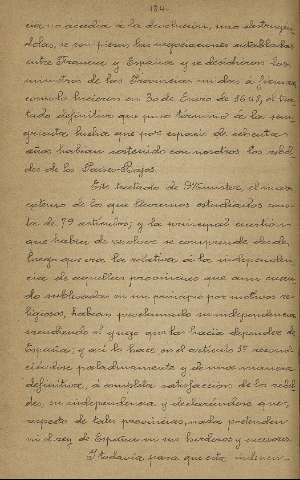 184.
cia no accedia á la devolucion, una estrangu
dolas, se con las negociaciones entabladas
entre Francia y España y se decidieron los
ministros de las Provincias unidas á firmar
como lo hicieron en 30 de Enero de 1648, el tra
tado definitivo que puso termino á la san
grienta lucha que por espacio de ochenta
años habian sostenido con nosotros los rebel
des de los Paises-Bajos.
Este tratado de Munster, el mas
extenso de los que llevamos estudiados cons
ta de 79 articulos; y la principal cuestion
que habia de resolver se comprende desde
luego que era la relativa á la independen
cia de aquellas provincias que aun cuan
do sublevadas en un principio por motivos re
ligiosos, habian proclamado su independencia
sacudiendo el yugo que las hacia depender de
España; y asi lo hace en el articulo 1º recono
ciéndose paladinamente y de una manera
definitiva, á completa satisfaccion de los rebel
des, su independencia y declarándose que,
respecto de tales provincias, nada pretenden
ni el rey de España ni sus herederos y sucesores.
Y todavia para que esta indepen-